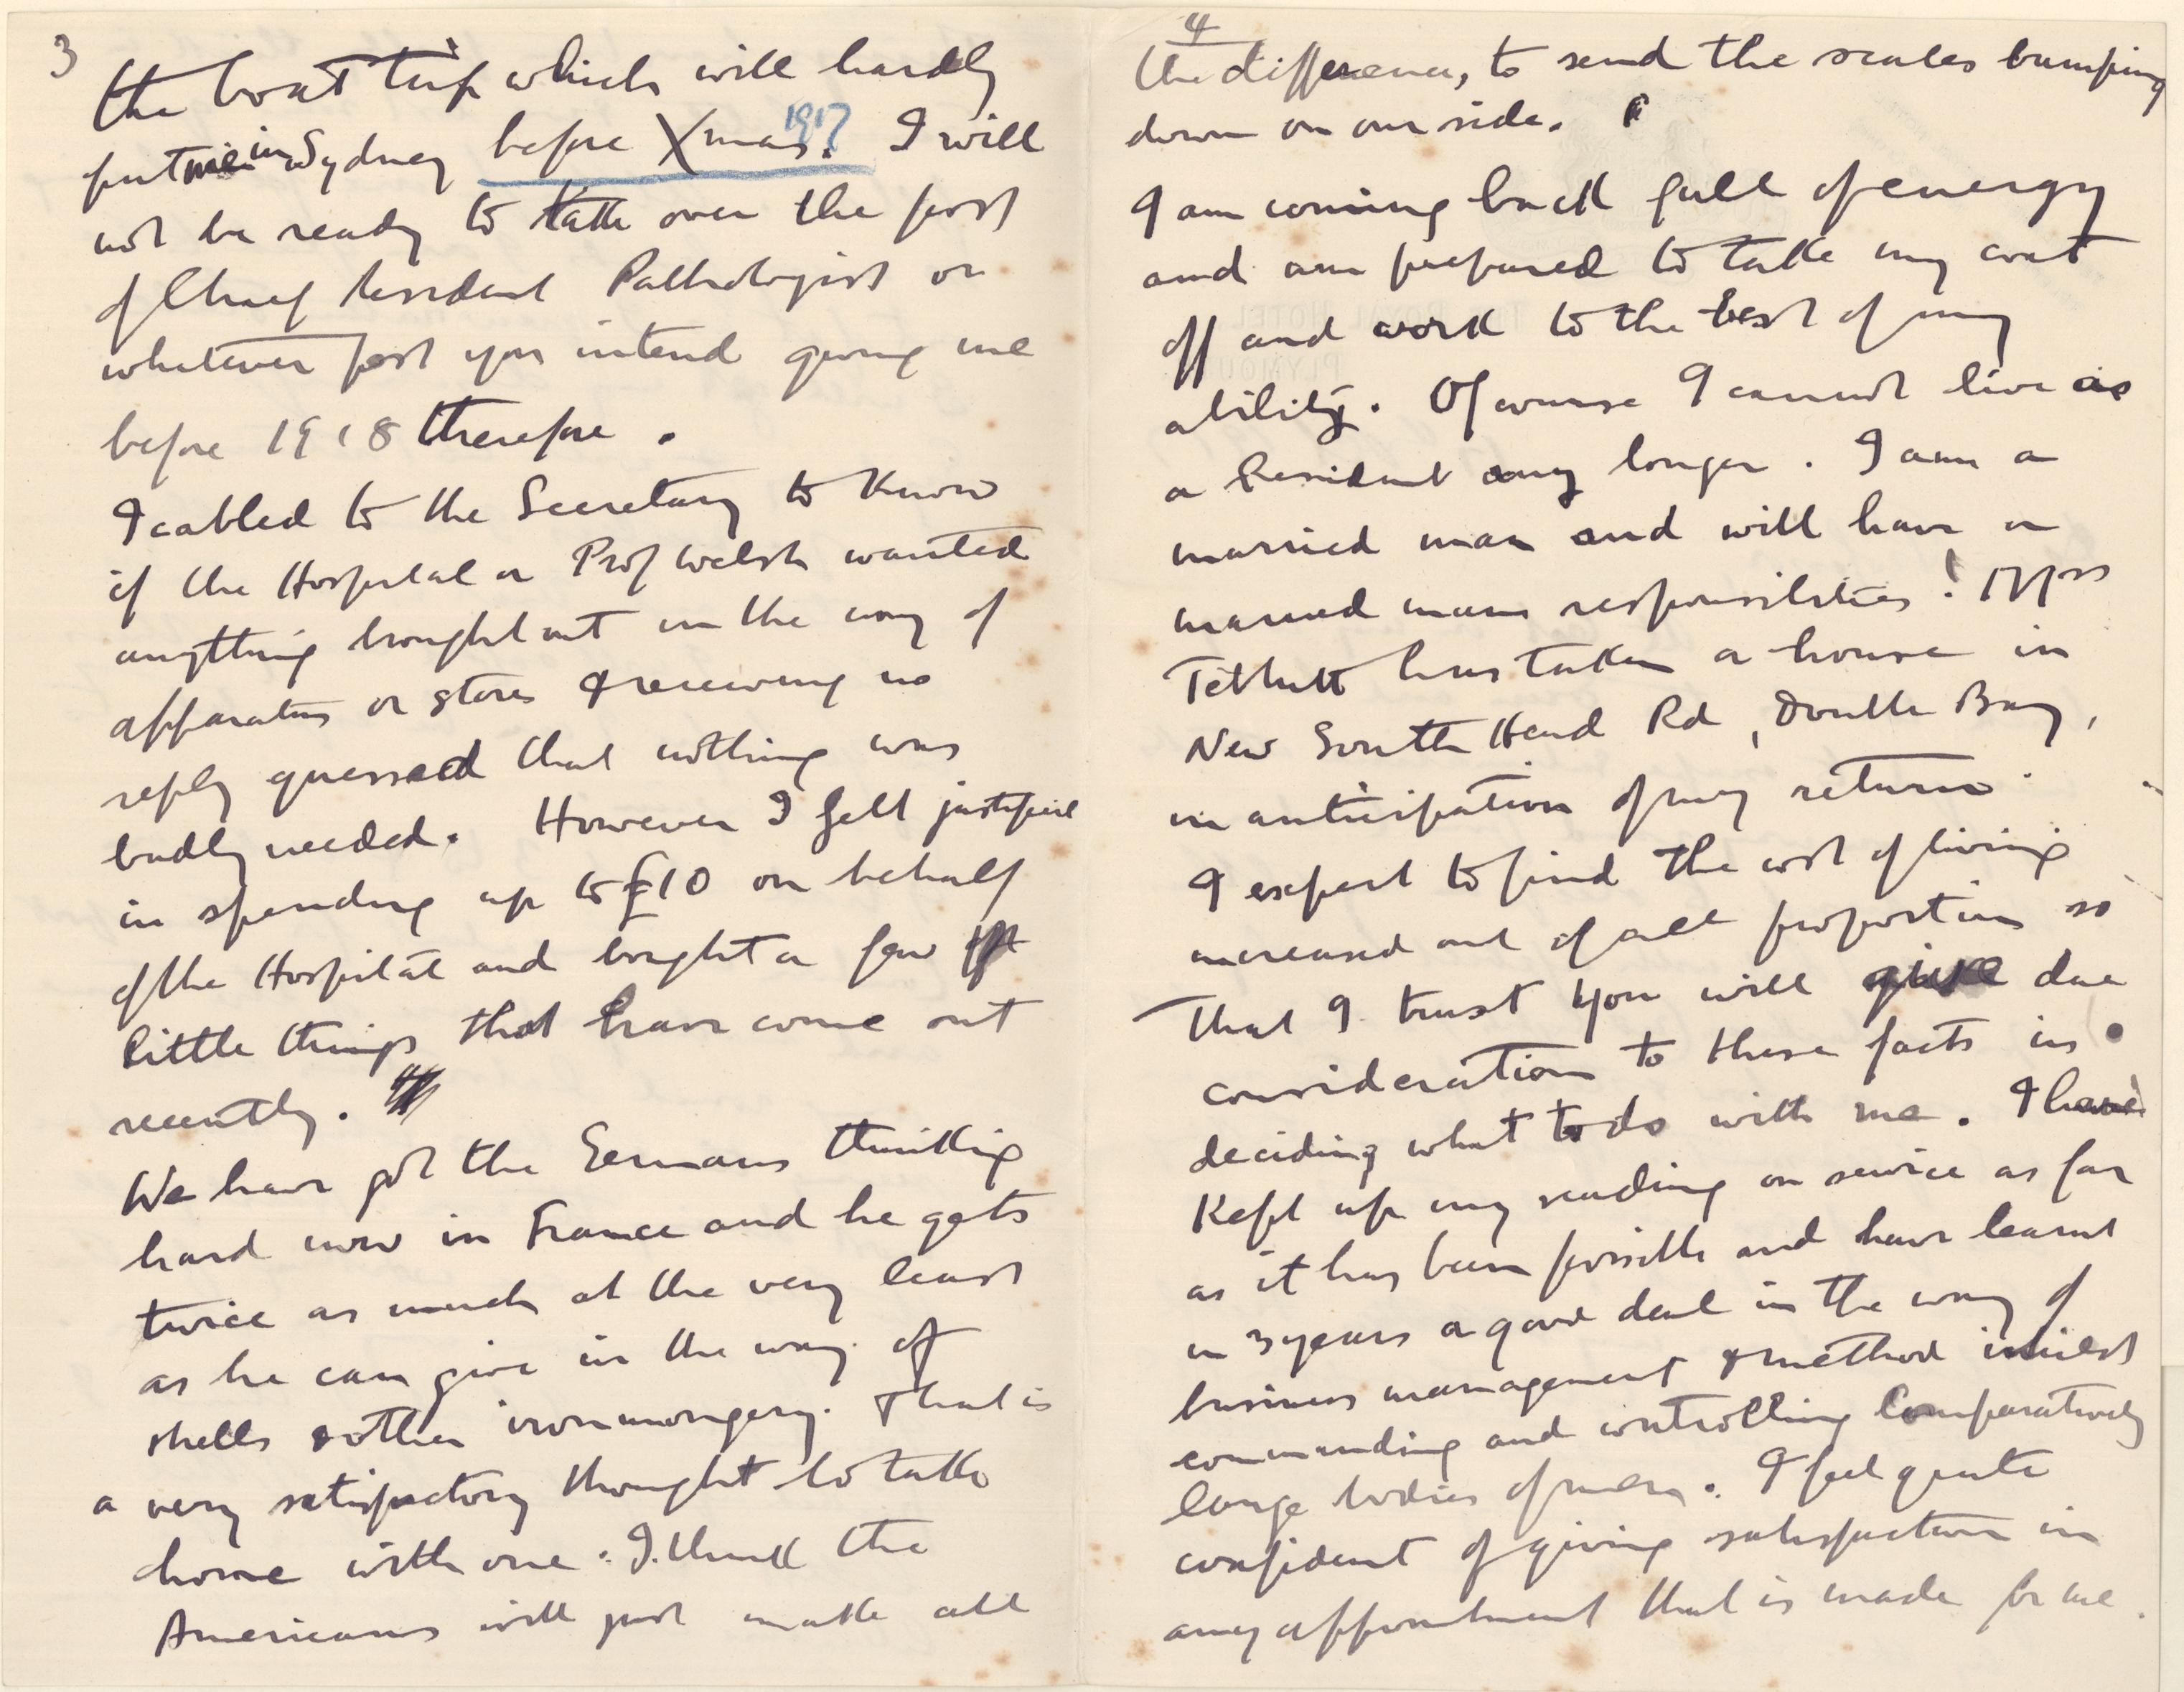 3
the boat trip which will hardly
put me in Sydney before Xmas. 1917 I will
not be ready to take over the post
of Chief Resident Pathologist or
whatever post you intend giving me
before 1918 therefore.
I cabled to the Secretary to know
if the Hospital or Prof Welsh wanted
anything brought out in the way of
apparatus or stores & receiving no
reply guessed that nothing was
badly needed. However I felt justified
in spending up to £10 on behalf
of the Hospital and bought a few
little things that have come out
recently.
We have got the Germans thinking
hard now in France and he gets
twice as much at the very least
as he can give in the way of
shells & other ironmongery. That is
a very satisfactory thought to take
home with one. I think the
Americans will just make all
4
the difference, to send the scales bumping
down on our side.
I am coming back full of energy
and am prepared to take my coat
off and work to the best of my
ability. Of course I cannot live as
a Resident any longer. I am a
married man and will have a
married mans responsibilities! Mrs
Tebbutt has taken a house in
New South Head Rd, Double Bay,
in anticipation of my return.
I expect to find the cost of living
increased out of all proportion so
that I trust you will give due
consideration to these facts in
deciding what to do with me. I have
kept up my reading on service as far
as it has been possible and have learnt
in 3 years a good deal in the way of
business management & method whilst
commanding and controlling comparatively
large bodies of men. I feel quite
confident of giving satisfaction in
any appointment that is made for me.